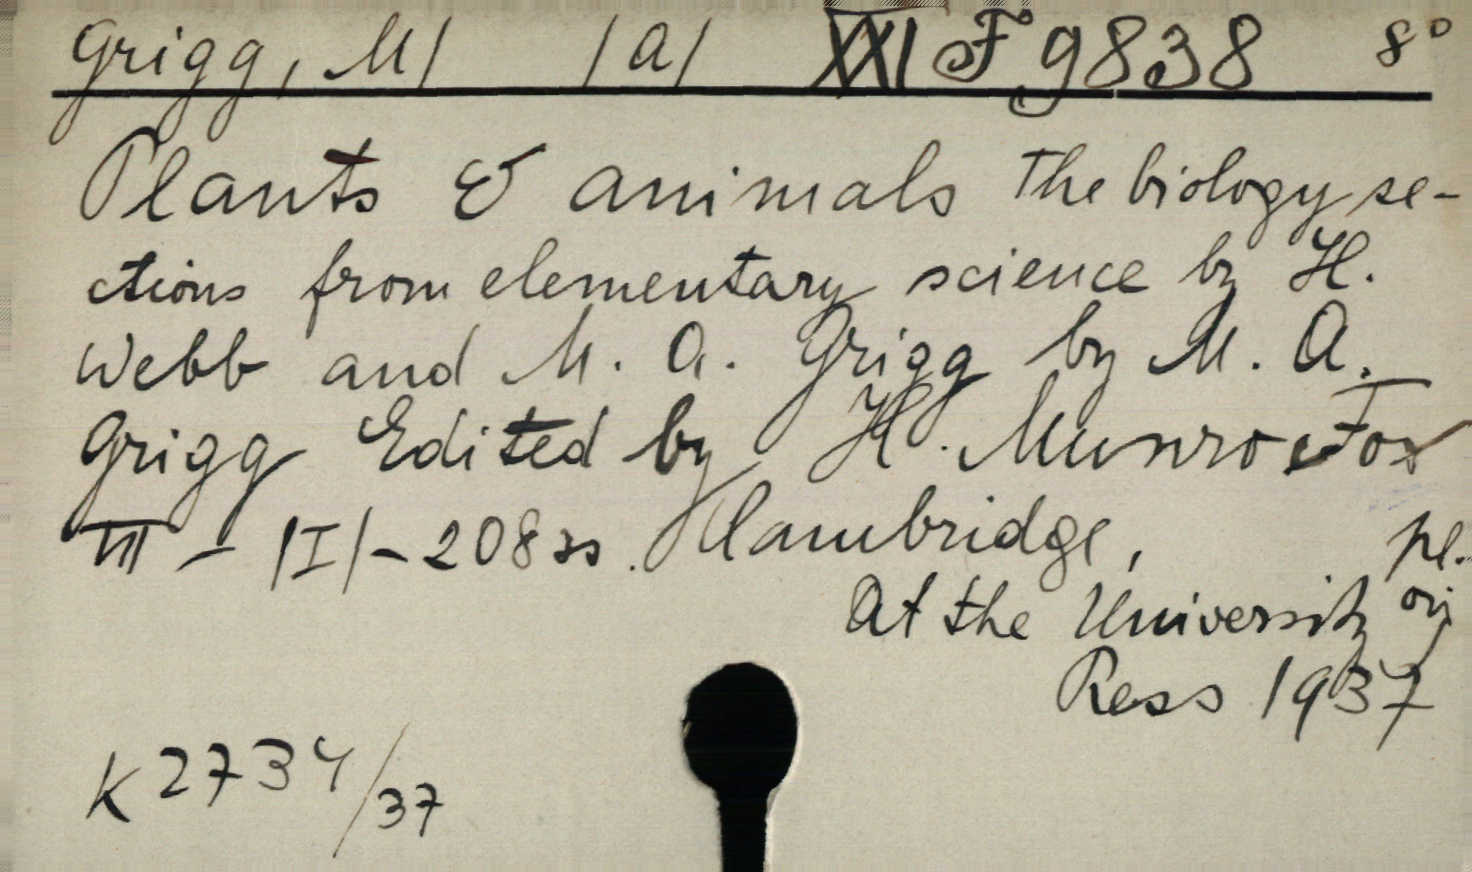 Grigg, M/ /A/ XXI F 9838 8°
Plants & animals The biology se-
ctions from elementary science by H.
Webb and M. A. Grigg by M. A.
Grigg Edited by H. Munro Fox
VIII - /I/ - 208 ss. Cambridge,
pl.
At the University
Press 1937
K 2734/37